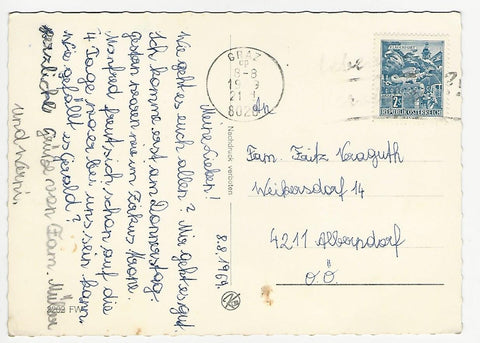 Meine Lieben!
Wie geht es euch allen? Mir geht es gut
Ich komme erst am Donnerstag.
Gestern waren wir im Zirkus Krone.
Manfred freut sich schon auf die
4 Tage wo er bei uns sein kann.
Wie gefällt es Gerald?
Herzliche Grüße von Fam. Müller
und
8.8.1969.
Nachdruck verboten
GRAZ
8-8
8020
2S
REPUBLIK ÖSTERREICH
An
Fam. Fritz Kraguth
Weikersdorf 14
4211 Alberndorf
O.Ö.